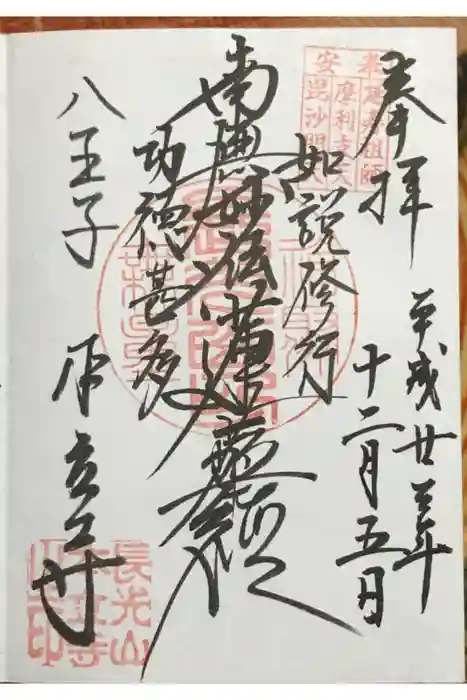 奉拝
平成廿三年
十二月五日
奉安
祖師
摩利支天
毘沙門天
如説修行
南無妙法蓮華経
功徳甚多
八王子
本立寺
長光山
本立寺
之印